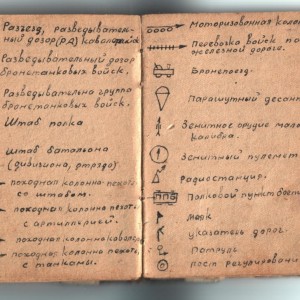 Разъезд, разведыватель-
ный дозор (РД) кавалерийск
Разведывательный дозор
бронетанковых войск.
Разведывательно группа
бронетанковых войск.
Штаб полка
Штаб батальона
(дивизиона,
походная колонна пехоты
со штабом.
походная колонна пехот.
с артиллерией.
походная колонна кавалер
походная колонна пехот.
с танками.
Моторизованная колон
Перевозка войск по
железной дороге.
Бронепоезд.
Парашутный десант
Зенитное орудие мало
калибра.
Зенитный пулемет
Радиостанция.
Полковой пункт боеп
Маяк
указатель дорог
Патруль
пост регулирования